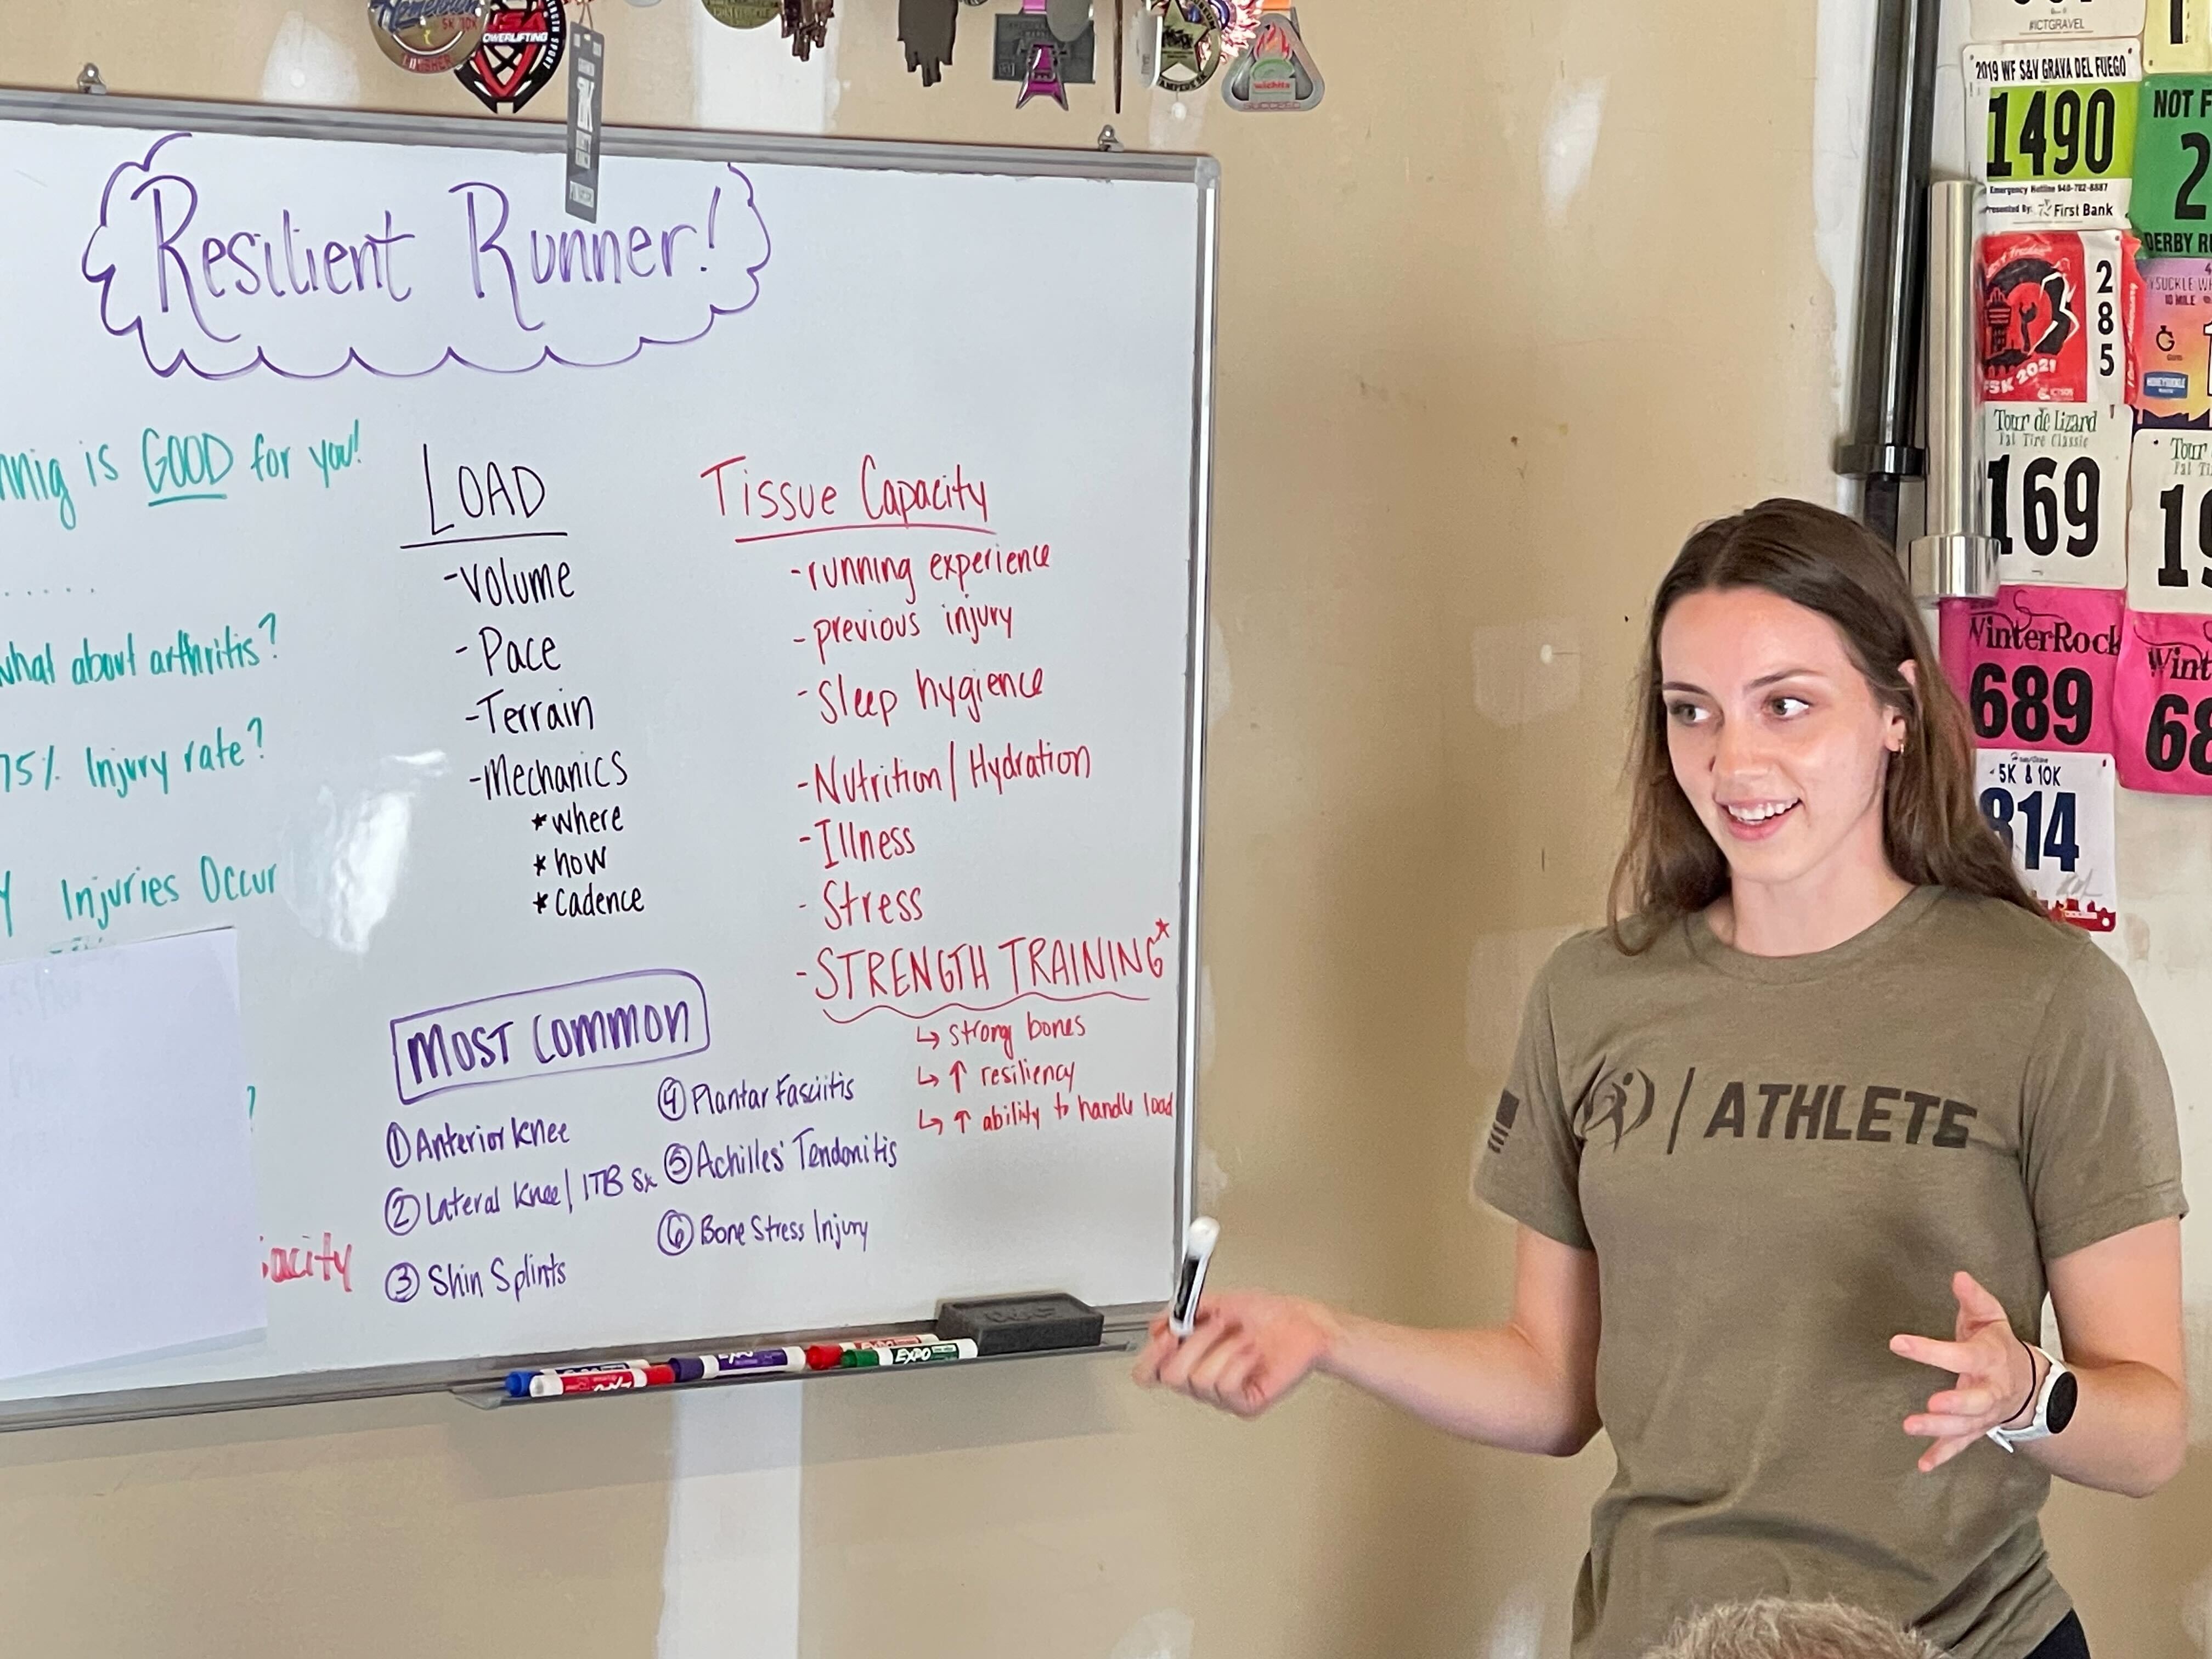 Resilient Runner!
nnig is GOOD for you!
what about arthritis?
75% Injury rate?
Y Injuries Occur
?
acity
LOAD
-Volume
- Pace
-Terrain
-Mechanics
* where
* how
* Cadence
Tissue Capacity
- running experience
- previous injury
- Sleep hygience
- Nutrition / Hydration
- Illness
- Stress
- STRENGTH TRAINING*
↳ strong bones
↳ ↑ resiliency
↳ ↑ ability to handle load
MOST COMMON
① Anterior Knee
② Lateral Knee / ITB Sx
③ Shin Splints
④ Plantar Fasciitis
⑤ Achilles' Tendonitis
⑥ Bone Stress Injury
EXPO
| ATHLETE
#ICTGRAVEL
2019 WF S&V GRAVA DEL FUEGO
1490
Emergency Hotline 940-782-8887
Presented By: First Bank
NOT F
2
DERBY RU
285
5K 2021
YSUCKLE W
10 MILE
Tour de Lizard
Fat Tire Classic
169
Tour
Fat Ti
19
WinterRock
689
Wint
68
5K & 10K
814
POWERLIFTING
FINISHER
wichita